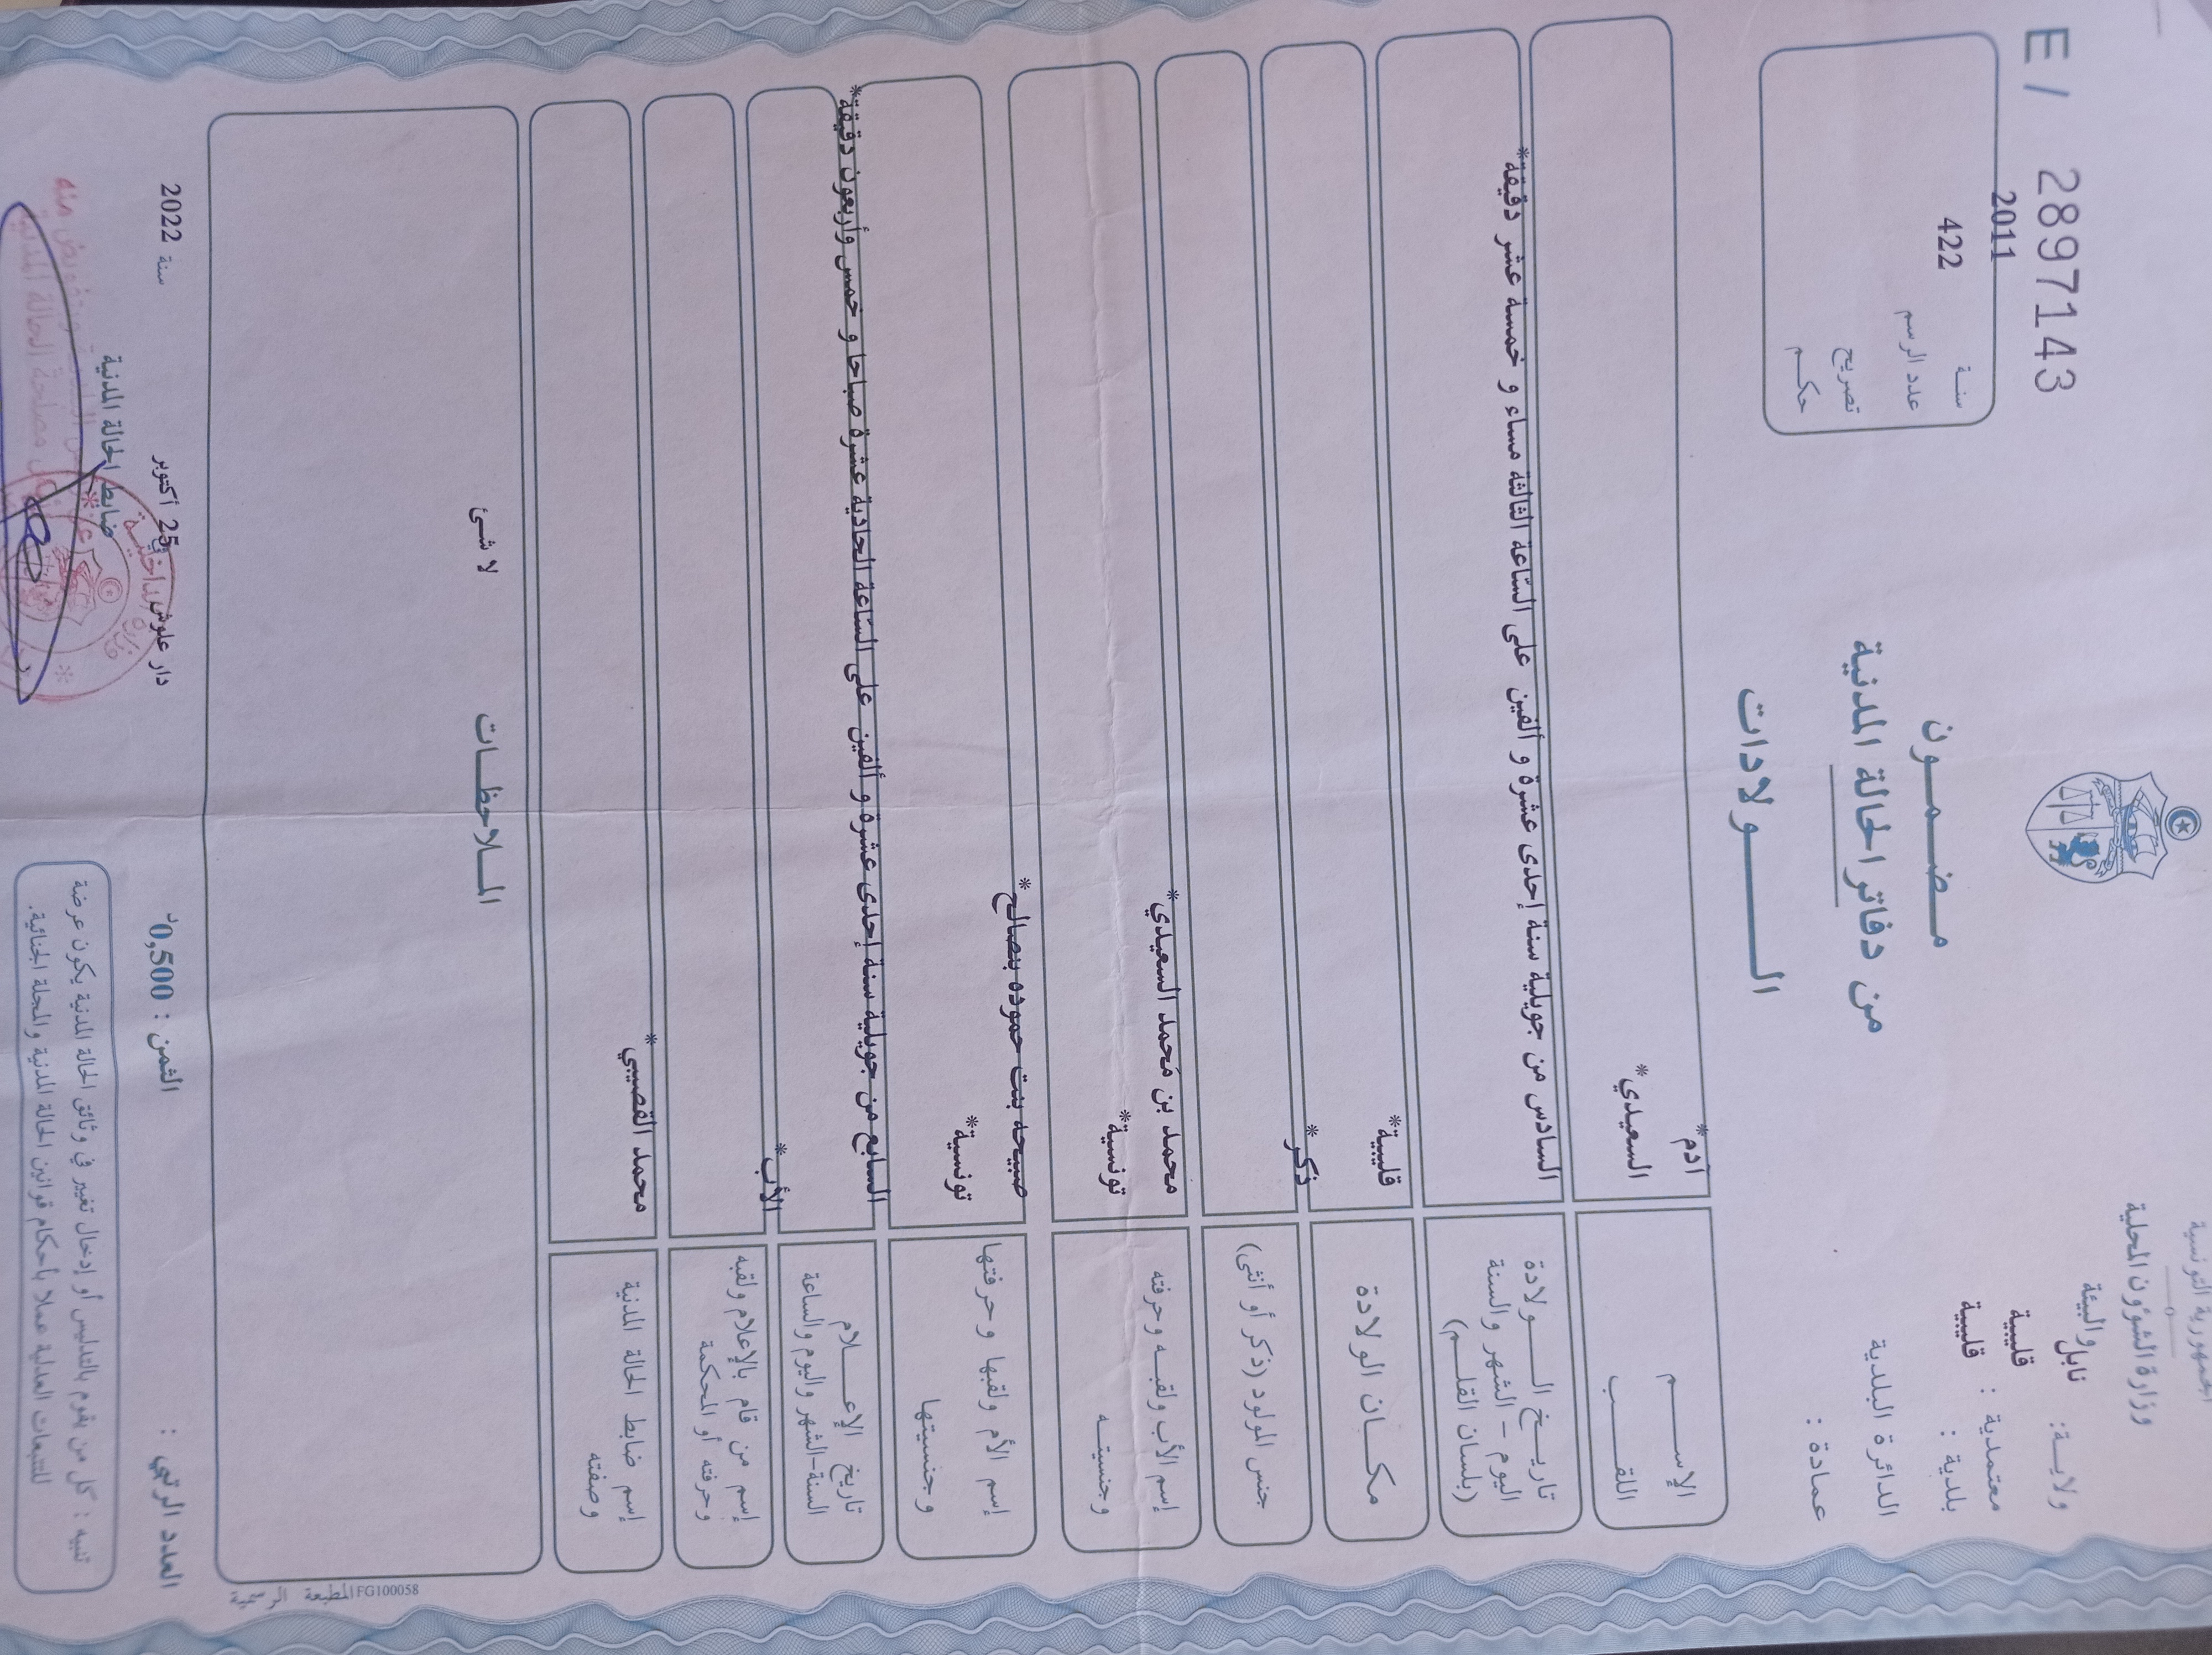 E / 2897143
الجمهورية التونسية
وزارة الشؤون المحلية
والبيئة
ولايـــة: نابل
معتمدية : قليبية
بلدية : قليبية
الدائرة البلدية
عمادة :
سنــة 2011
عدد الرسم 422
تصريح
حكـــم
مــضــمــون
من دفاتر الحالة المدنية
الـــولادات
الإســـم آدم*
اللقـــب السعيدي*
تاريــخ الـــولادة
اليوم – الشهر والسنة
(بلسان القلــم)
السادس من جويلية سنة إحدى عشرة و ألفين على السّاعة الثالثة مساء و خمسة عشر دقيقة*
مكــان الولادة قليبية*
جنس المولود (ذكر أو أنثى) ذكر*
إسم الأب ولقبــه وحرفته محمد بن مَحمد السعيدي*
وجنسيتــه تونسية*
إسم الأم ولقبها وحرفتها صبيحه بنت حموده بنصالح*
وجنسيتها تونسية*
تاريخ الإعـــلام
السنة-الشهر واليوم والساعة
السابع من جويلية سنة إحدى عشرة و ألفين على السّاعة الحادية عشرة صباحا و خمس وأربعون دقيقة*
إسم من قام بالإعلام ولقبه
وحرفته أو المحكمة
الأب*
إسم ضابط الحالة المدنية
وصفته
محمد القصيبي*
المــلاحظــات
لا شئ
المطبعة الرسمية FG100058
العدد الرتبي :
الثمن : 0,500د
دار علوش في 25 أكتوبر سنة 2022
ضابط الحالة المدنية
تنبيه : كل من يقوم بالتدليس أو إدخال تغيير في وثائق الحالة المدنية يكون عرضة
للتتبعات العدلية عملا بأحكام قوانين الحالة المدنية والمجلة الجنائية.